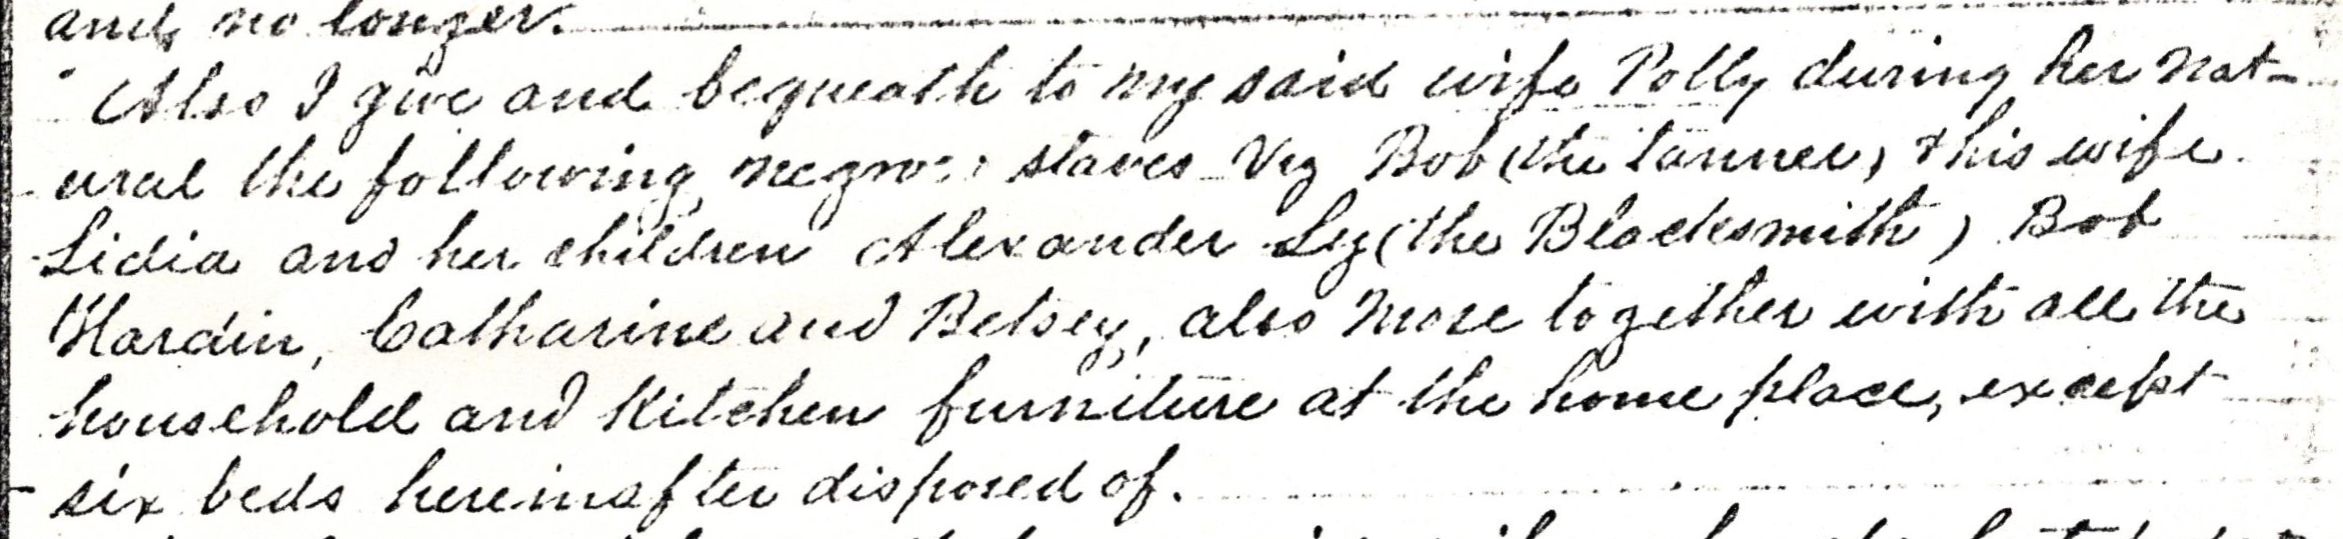 and no longer.
Also I give and bequeath to my said wife Polly during her nat-
ural the following negro slaves Viz Bob (the tanner) & his wife
Lidia and her children Alexander Ly (the Blacksmith) Bob
Hardin, Catharine and Betsey, also Mose together with all the
household and Kitchen furniture at the home place, except
six beds hereinafter disposed of.